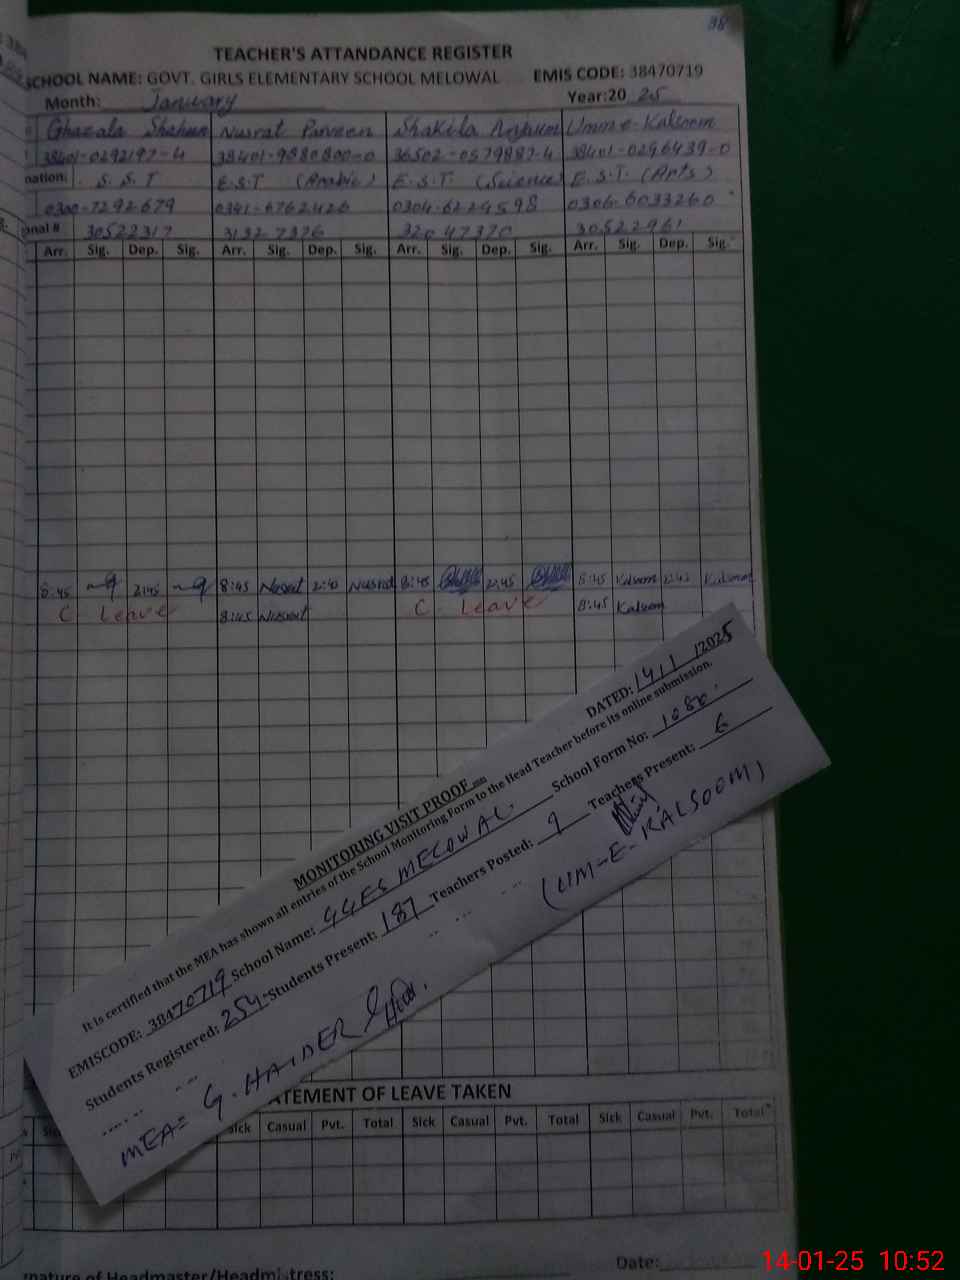 38
TEACHER'S ATTANDANCE REGISTER
SCHOOL NAME: GOVT. GIRLS ELEMENTARY SCHOOL MELOWAL EMIS CODE: 38470719
Month: January Year:20 25
Ghazala Shaheen Nusrat Parveen Shakila Anjum Umm-e-Kalsoom
38401-0292197-4 38401-9880800-0 36502-0579887-4 38401-0296439-0
nation: S.S.T E.S.T (Arabic) E.S.T. (Science) E.S.T. (Arts)
0300-7292679 0341-6762426 0304-6224598 0306-6033260
onal # 30522317 31327376 32047370 30522961
Arr. Sig. Dep. Sig. Arr. Sig. Dep. Sig. Arr. Sig. Dep. Sig. Arr. Sig. Dep. Sig.
8:45 2:45 8:45 Nusrat 2:45 Nusrat 8:45 2:45 8:45 Kalsoom 2:45 Kalsoom
C Leave 8:45 Nusrat C. Leave 8:45 Kalsoom
DATED: 14/1/2025
MONITORING VISIT PROOF
It is certified that the MEA has shown all entries of the School Monitoring Form to the Head Teacher before its online submission.
EMISCODE: 38470719 School Name: GGES MELOWAL School Form No: 1080
Students Registered: 254 Students Present: 187 Teachers Posted: 9 Teachers Present: 6
MEA= G. HAIDER (UM-E-KALSOOM)
ATEMENT OF LEAVE TAKEN
Sick Casual Pvt. Total Sick Casual Pvt. Total Sick Casual Pvt. Total
nature of Headmaster/Headmistress: Date:
14-01-25 10:52